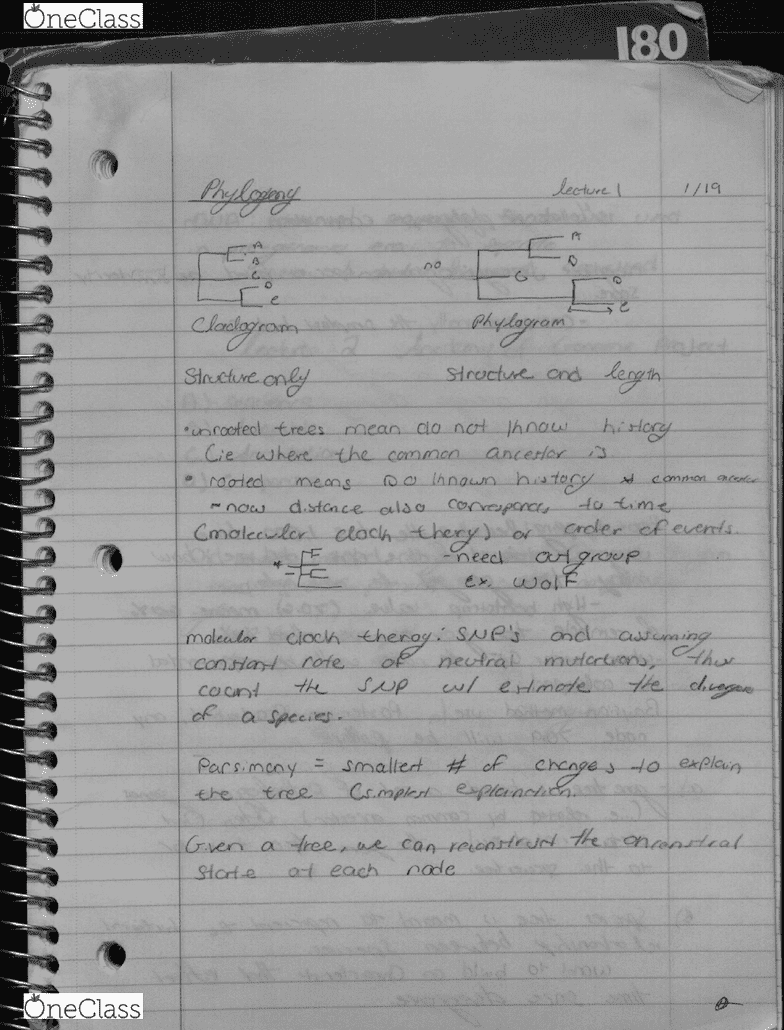 OneClass
180
Phylogeny lecture 1 1/19
A
B
C
D
E
no
A
B
C
D
E
Cladogram Phylogram
Structure only Structure and length
•unrooted trees mean do not know history
(ie where the common ancestor is
• rooted means DO known history * common ancestor
~now distance also corresponds to time
(molecular clock thery) or order of events.
* F -need outgroup
C ex. wolf
molecular clock theroy: SNP's and assuming
constant rate of neutral mutations, thus
count the SNP w/ estimate the
of a species.
Parsimony = smallest # of changes to explain
the tree (simplest explaination.
Given a tree, we can reconstruct the
state at each node
OneClass
OneClass